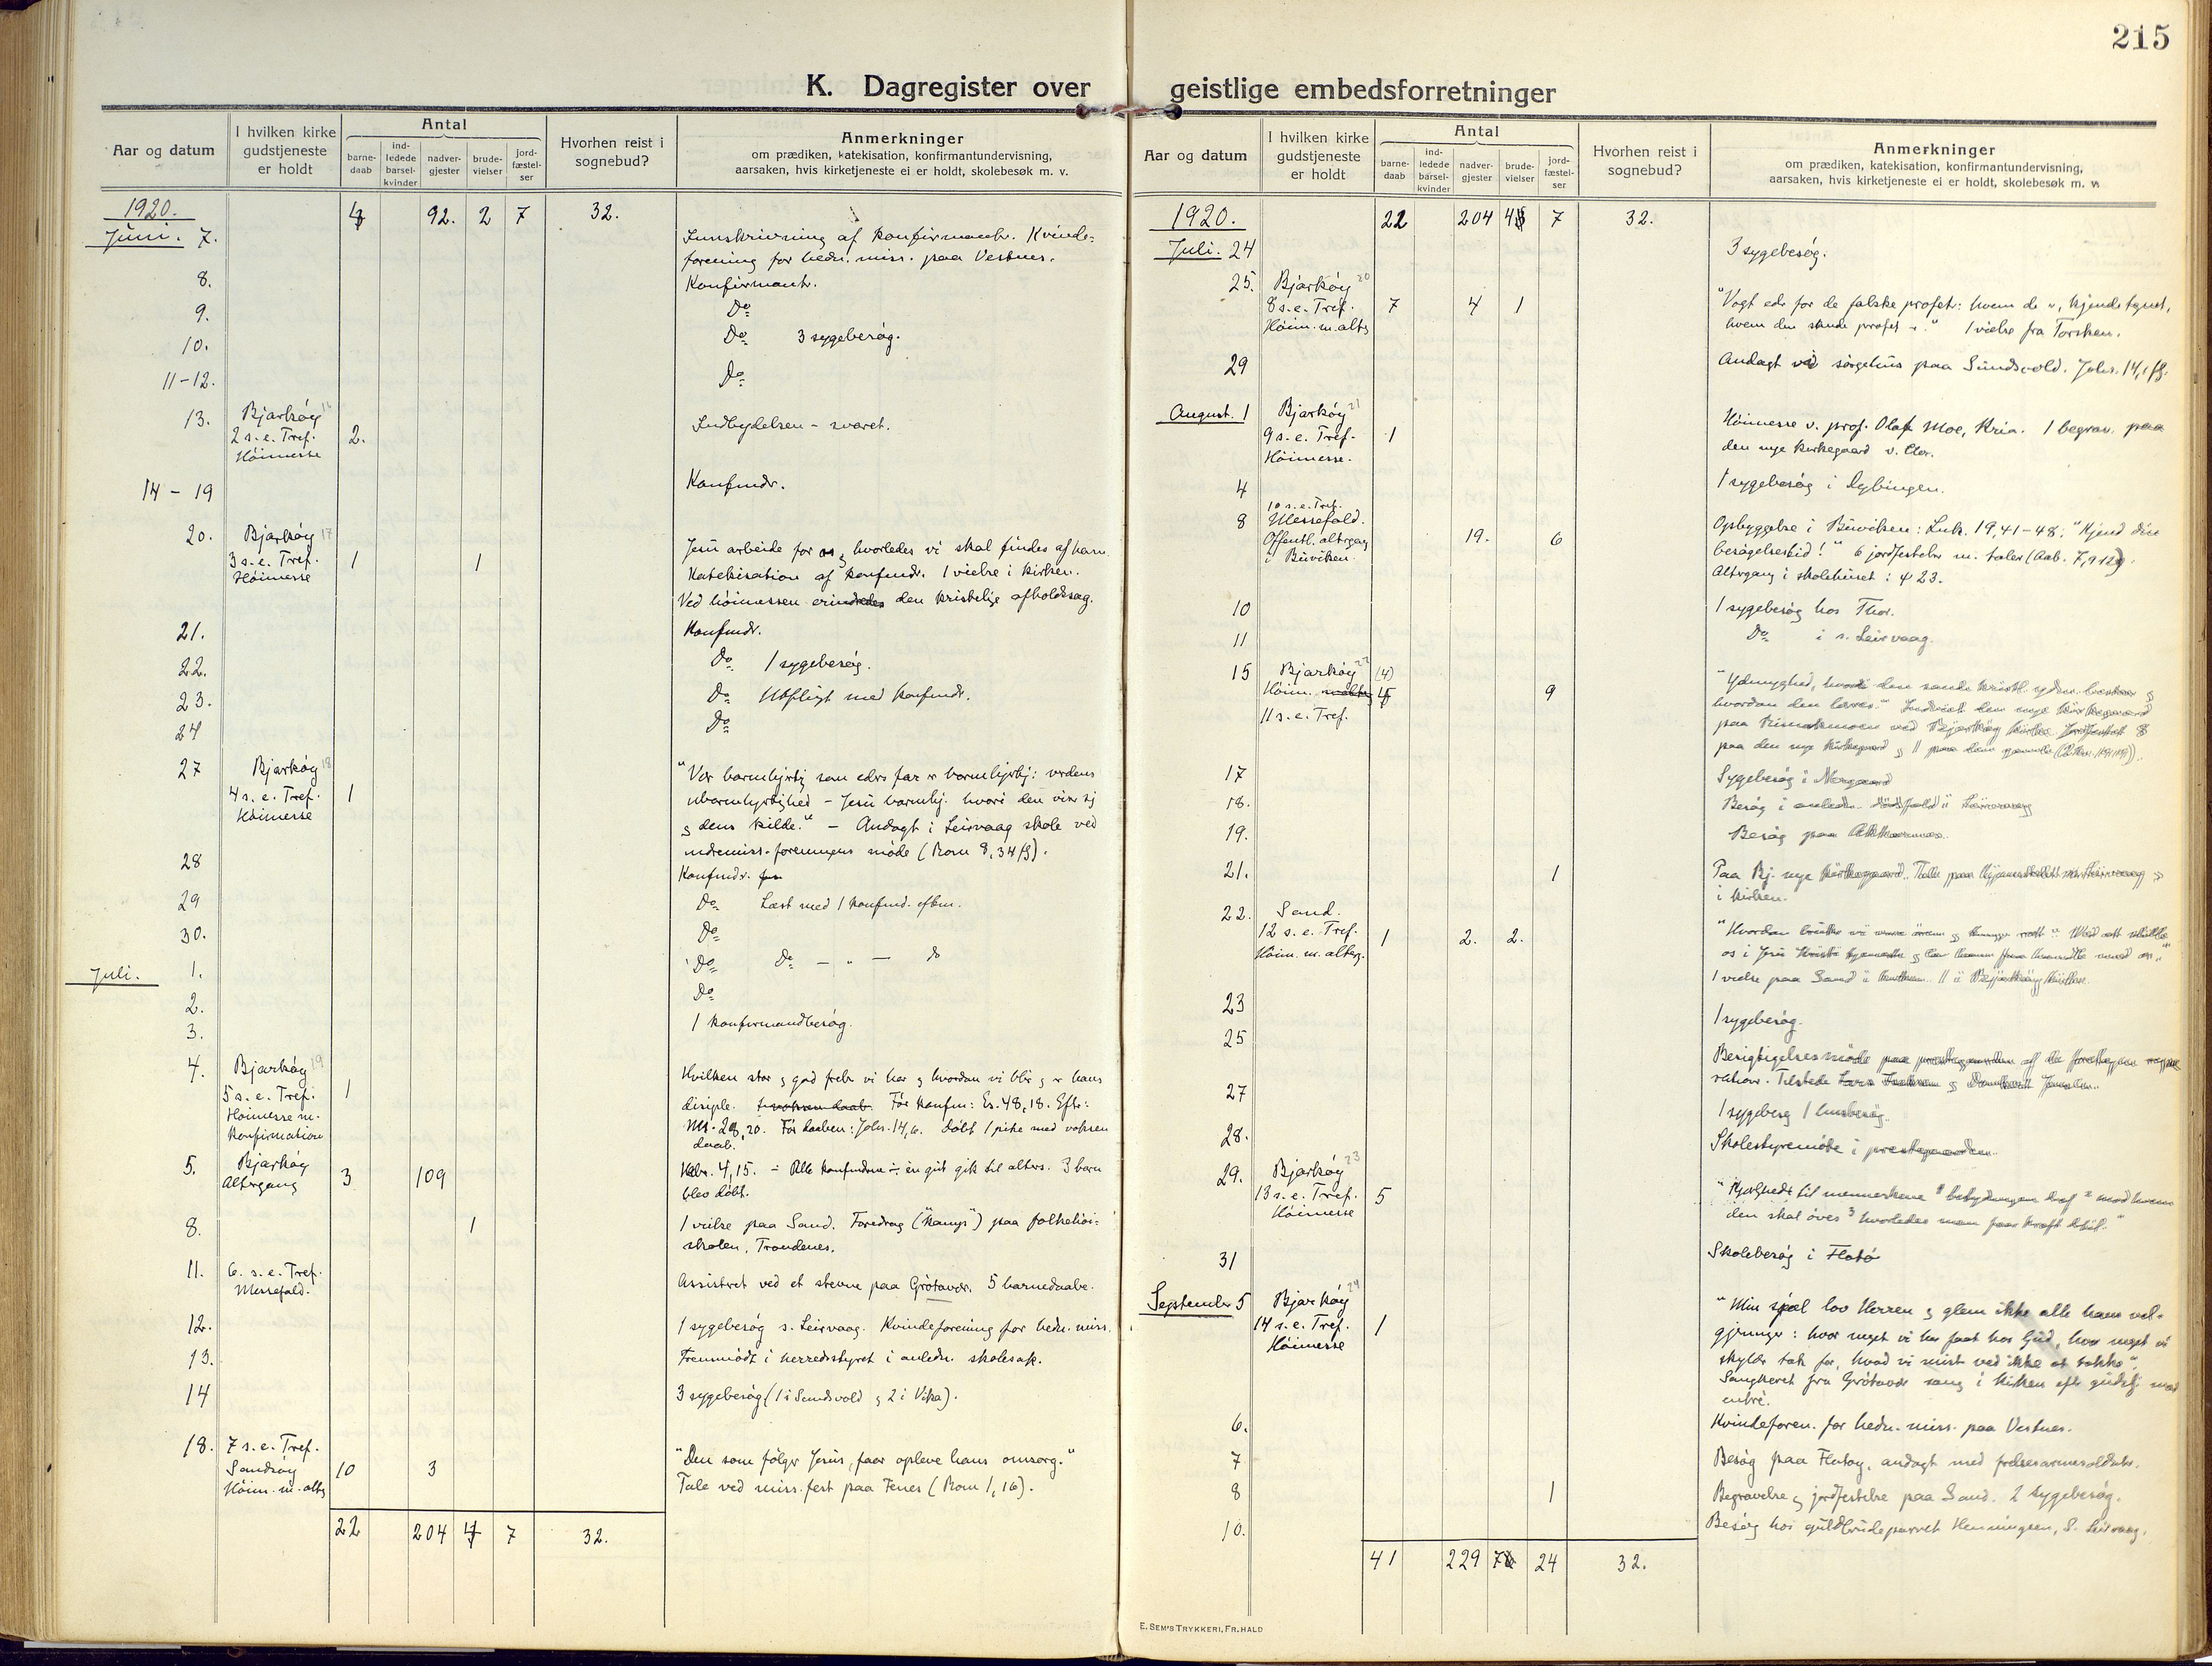 215
K. Dagregister over geistlige embedsforretninger
Aar og datum
I hvilken kirke gudstjeneste er holdt
Antal
barne-daab
ind-ledede barsel-kvinder
nadver-gjester
brude-vielser
jord-fæstel-ser
Hvorhen reist i sognebud?
Anmerkninger
om prædiken, katekisation, konfirmantundervisning,
aarsaken, hvis kirketjeneste ei er holdt, skolebesøk m. v.
1920. 92. 2 7 32.
Juni. 7. Innskrivning af konfirmantr. Kvinde=
forening for hedn. miss. paa Vestnes.
8. Konfirmantr.
9. Do
10. Do 3 sygebesøg.
11-12. Do
13. Bjarkøy 16
2 s. e. Tref. 2. Indbydelsen - svaret.
Høimesse
14 - 19 Konfmdr.
20. Bjarkøy 17
3 s. e. Tref. 1 1 Jesu arbeide for os, hvorledes vi skal findes af ham.
Høimesse Katekisation af konfmdr. 1 vielse i kirken.
Ved høimessen den kristelige afholdssag.
21. Konfmdr.
22. Do 1 sygebesøg.
23. Do Utflugt med konfmdr.
24 Do
27 Bjarkøy 18 "Vær barmhjertig som eders far er barmhjertig: verdens
4 s. e. Tref. 1 ubarmhjertighed - Jesu barmhj. hvori den viser sig
Høimesse & dens kilde." - Andagt i Leirvaag skole ved
indremiss. foreningens møde (Rom 8,34 ff).
28 Konfmdr.
29 Do Læst med 1 konfmd. efterm.
30. Do
Juli. 1. Do Do - " - do
2. Do
3. 1 konfirmandbesøg.
4. Bjarkøy 19 Hvilken stor & god frelser vi har & hvordan vi blir & er hans
5 s. e. Tref. 1 disiple. Før konfm: Es. 48,18. Efter:
Høimesse m. Mt. 28,20. Før daaben: Johs. 14,6. Døbt 1 pike med voksen
konfirmation daab.
5. Bjarkøy 3 109 Hebr. 4,15. - Alle konfmdrne ÷ en gut gik til alters. 3 barn
Altergang blev døbt.
8. 1 1 vielse paa Sand. Foredrag ("Kamp") paa folkehøi=
skolen, Trondenes.
11. 6. s. e. Tref. Assisteret ved et stevne paa Grøtavær. 5 barnedaabe.
Messefald.
12. 1 sygebesøg s. Leirvaag. Kvindeforening for hedn. miss.
13. Fremmødt i herredsstyret i anledn. skolesak.
14 3 sygebesøg (1 i Sundsvold & 2 i Vika).
18. 7 s. e. Tref. "Den som følger Jesus, faar opleve hans omsorg."
Sandsøy 10 3 Tale ved miss. fest paa Fenes (Rom 1,16).
Høim. m. altg
22 204 4 7 32.
Aar og datum
I hvilken kirke gudstjeneste er holdt
Antal
barne-daab
ind-ledede barsel-kvinder
nadver-gjester
brude-vielser
jord-fæstel-ser
Hvorhen reist i sognebud?
Anmerkninger
om prædiken, katekisation, konfirmantundervisning,
aarsaken, hvis kirketjeneste ei er holdt, skolebesøk m. v.
1920. 22 204 4 7 32.
Juli. 24 3 sygebesøg.
25. Bjarkøy 20 "Vogt eder for de falske profeter: hvem de er, kjendetegnet,
8 s. e. Tref. 7 4 1 hvem den sande profet er." 1 vielse fra Torsken.
Høim. m. altg
29 Andagt ved sørgehus paa Sundsvold. Johs. 14,1 ff.
August. 1 Bjarkøy 21 Høimesse v. prof. Olaf Moe, Kria. 1 begrav. paa
9 s. e. Tref. 1 den nye kirkegaard v.
Høimesse.
4 1 sygebesøg i
8 10 s. e. Tref.
Messefald. Opbyggelse i Buviken: Luk. 19,41-48: "Kjend din
Offentl. altergang 19. 6 besøgelsestid!" 6 jordfestelser m. taler (Aab. 7,9-12).
i Buviken. Altergang i skolehuset: 23.
10 1 sygebesøg hos Thor.
11 Do i s. Leirvaag.
15 Bjarkøy 22 (4) "Ydmyghed, den sande kristl. ydm.
Høim. 9 hvordan den læres." Indviet den nye kirkegaard
11 s. e. Tref. paa ved Bjarkøy kirke. Jordfestet 8
paa den nye kirkegaard & 1 paa den gamle
17 Sygebesøg i Nergaard
18. Besøg i anledn. dødsfald i Leirvaag
19. Besøg paa
21. 1 Paa Bj. nye kirkegaard. &
i kirken.
22. Sand. "Hvordan
12 s. e. Tref. 1 2. 2. os i Jesu Kristi
Høim. m. alterg. 1 vielse paa Sand i kirken. 1 i Bjarkøy kirke.
23 1 sygebesøg.
25 Berigtigelsesmøde paa af de
Tilstede &
27 1 sygebesøg
28. Skolestyremøte i prestegaarden.
29. Bjarkøy 23 "Kjærlighed til menneskene 1 betydningen
13 s. e. Tref. 5 den skal øves 3 hvorledes man faar kraft dertil."
Høimesse
31 Skolebesøg i Flatø
September 5 Bjarkøy 24 "Min sjæl lov Herren & glem ikke alle hans vel=
14 s. e. Tref. 1 gjerninger: hvor meget vi har faat hos Gud, hvor meget vi
Høimesse skylder tak for, hvad vi mist ved ikke at takke".
Sangkoret fra Grøtavær sang i kirken efter gudstj. mod
entré.
6. Kvindeforen. for hedn. miss. paa Vestnes.
7 Besøg paa Flatøy, andagt med frelsesarmesoldater.
8 1 Begravelse & jordfestelse paa Sand. 2 sygebesøg.
10. Besøg hos guldbrudeparret Henningsen, S. Leirvaag.
41 229 7 24 32.
E. SEM'S TRYKKERI, FR.HALD